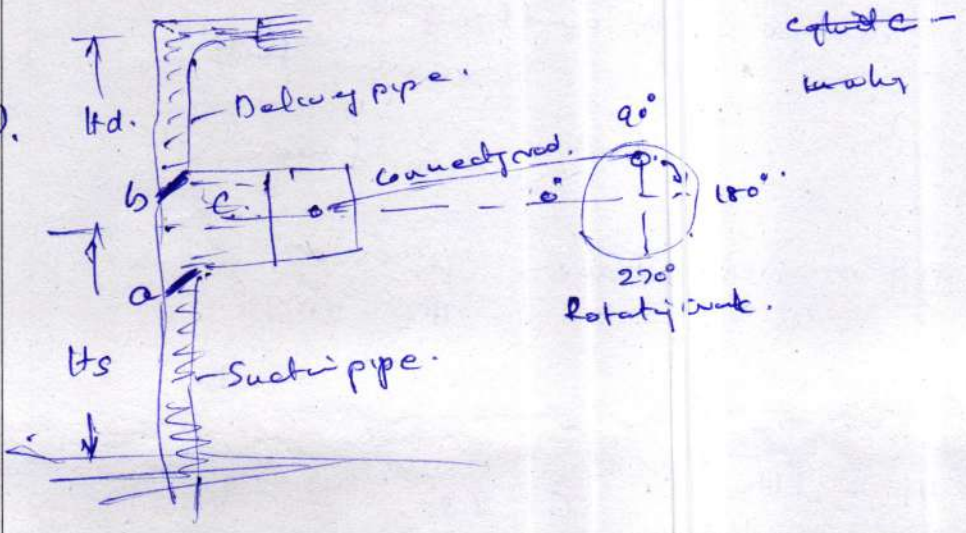 Hd.
Delivery pipe.
b
C.
connecting rod.
90°
0°
180°
270°
Rotating crank.
a
Hs
Suction pipe.